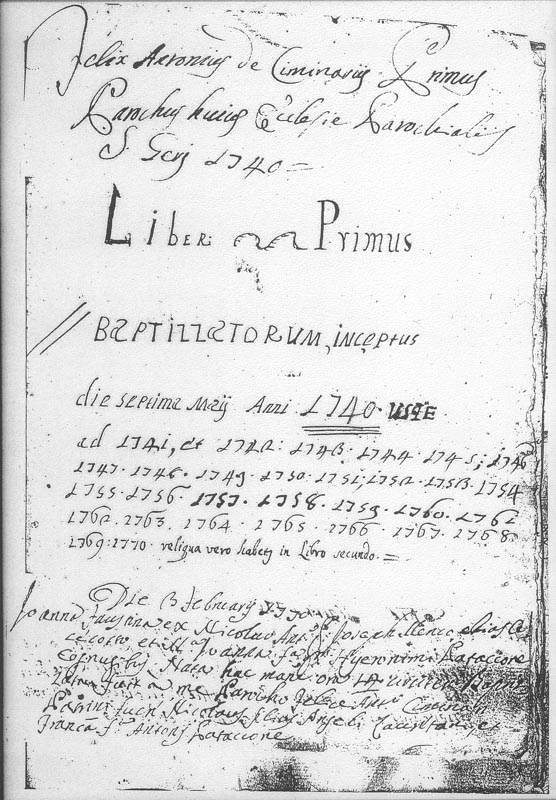 Felix Antonius de Ciminariis Primus
Parochus huius Ecclesie Parochialis
S. 1740 =
Liber Primus
BAPTIZZATORUM, inceptus
die septima Maij Anni 1740 USQE
ad 1741, et 1742: 1743: 1744 1745; 1746
1747 · 1748 · 1749 · 1750 · 1751; 1752 · 1753 1754
1755 · 1756 · 1757 · 1758 · 1759 · 1760 · 1761
1762 . 1763. 1764 · 1765 · 1766 · 1767 · 1768 ·
1769: 1770 · reliqua vero habetis in Libro secundo =
Die 3 February
Joanna Faustina ex Nicolao Joseph
et Joanna Hyeronimi Pataccione
Nata hac mane
fuit à me Parocho Felice
Patrini fuer. Nicolaus Angeli
Antonij Pataccione